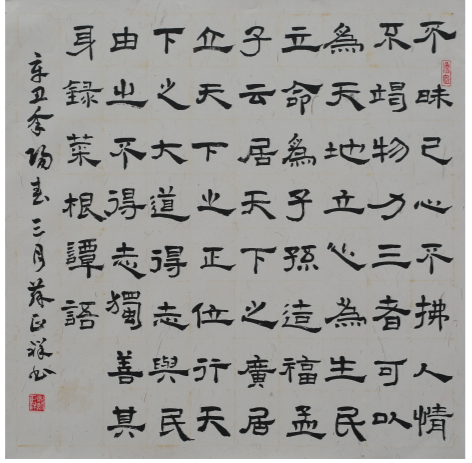 不昧己心不拂人情
不竭物力三者可以
為天地立心為生民
立命為子孫造福孟
子云居天下之廣居
立天下之正位行天
下之大道得志與民
由之不得志獨善其
身錄菜根譚語
辛丑秊陽春三月蘇正祥书